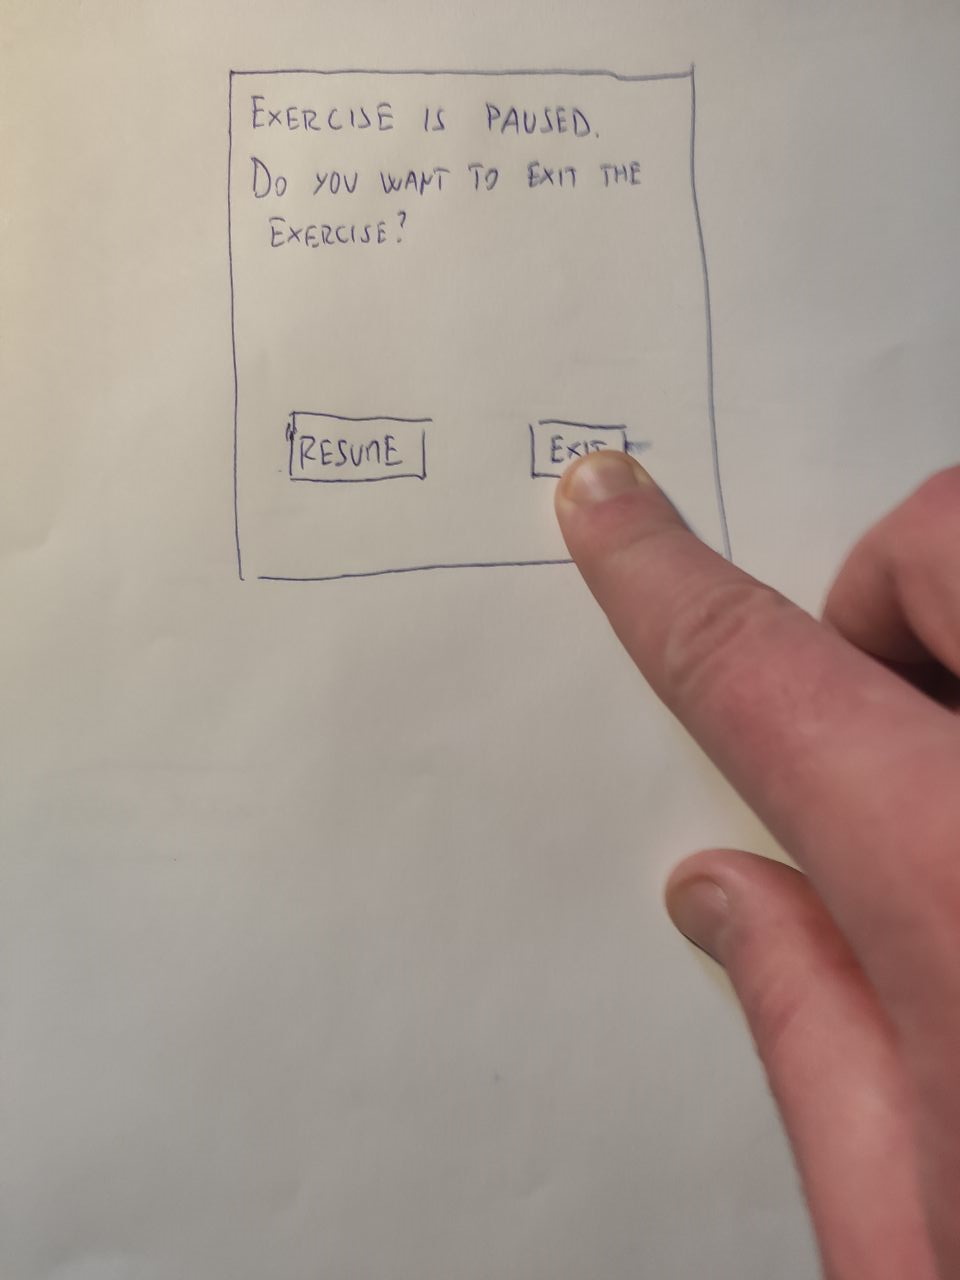 EXERCISE IS PAUSED.
DO YOU WANT TO EXIT THE
EXERCISE?
RESUME EXIT